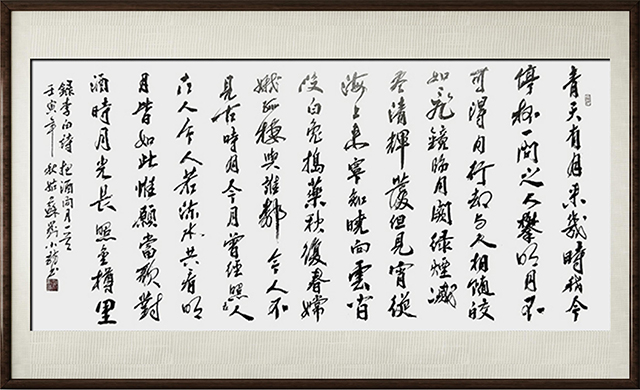 青天有月来幾時我今
停杯一問之人攀明月不
可得月行却与人相随皎
如飛鏡臨丹闕緑煙滅
尽清輝發但見宵從
海上来寧知曉向雲間
没白兔搗藥秋復春嫦
娥孤棲與誰鄰今人不
見古時月今月曾經照人
古人今人若流水共看明
月皆如此惟願當歌對
酒時月光長照金樽里
録李白詩把酒問月一首
壬寅年秋姑蘇小書